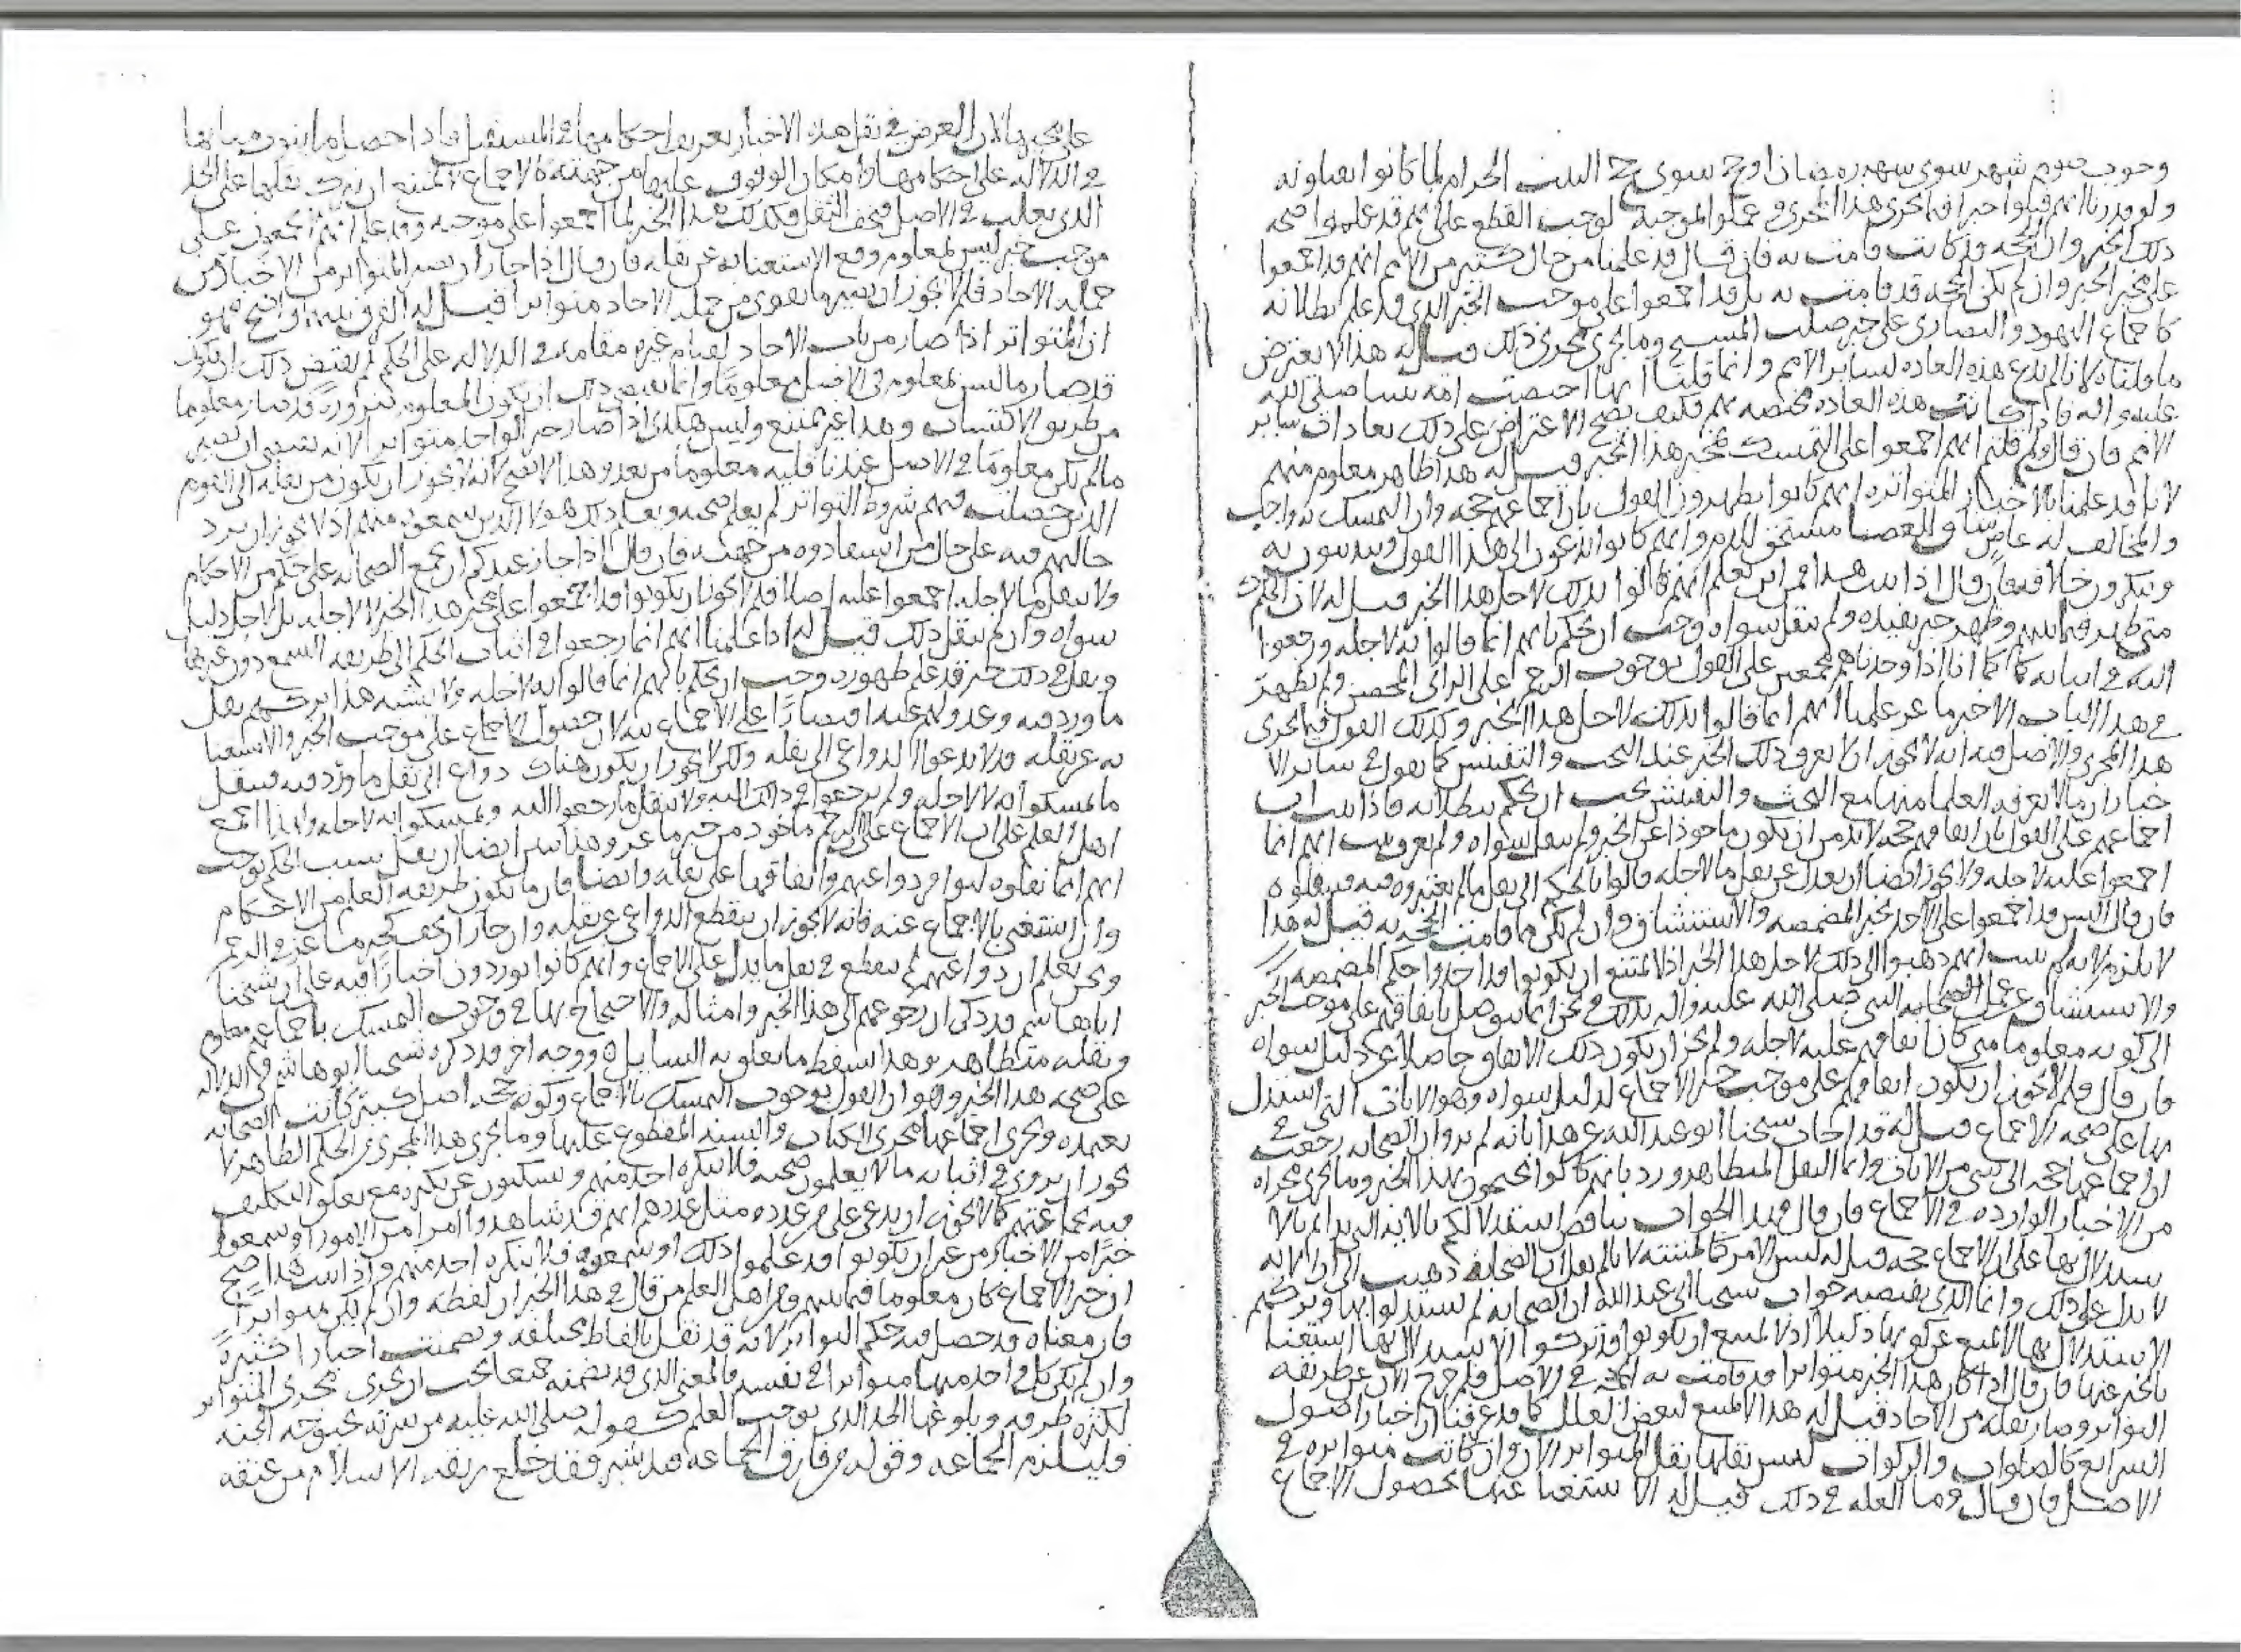 وجوب صوم شهر سوى شهر رمضان او حج سوى حج البيت الحرام لما كانوا يعملونه
ولو قدرنا انهم قبلوا خبرا فيما يجرى هذا المجرى وعملوا لموجبه لوجب القطع على انهم قد علموا صحه
ذلك الخبر وان الحجه قد كانت قامت به فان قال قد علمنا من حال كثير من الامم انهم قد اجمعوا
على مخبر الخبر وان لم تكن الحجه قد قامت به بل قد اجمعوا على موجب الخبر الذى قد علم بطلانه
كاجماع اليهود والنصارى على خبر صلب المسيح وما يجرى مجرى ذلك قيل له هذا لا يعترض
ما قلناه لانا لم ندع هذه العاده لسائر الامم وانما قلنا انها اختصت امه نبينا صلى الله
عليه واله فاذا كانت هذه العاده مختصه بهم فكيف يصح الاعتراض على ذلك بعادات سائر
الامم فان قال ولم قلتم انهم اجمعوا على التمسك بمخبر هذا الخبر قيل له هذا ظاهر معلوم منهم
لانا قد علمنا بالاخبار المتواتره انهم كانوا يظهرون القول بان اجماعهم حجه وان التمسك به واجب
والمخالف له عاص شاق للعصا مستحق للذم وانهم كانوا يدعون الى هذا القول ويدينون به
وينكرون خلافه فان قال اذا ثبت هذا فمن اين نعلم انهم قالوا بذلك لاجل هذا الخبر قيل له لان الحكم
متى ظهر فيما بينهم وظهر خبر يفيده ولم ينقل سواه وجب ان يحكم بانهم انما قالوا به لاجله ورجعوا
اليه فى اثباته كما انا اذا وجدناهم مجمعين على القول بوجوب الرجم على الزانى المحصن ولم يظهر
فى هذا الباب الا خبر ماعز علمنا انهم انما قالوا بذلك لاجل هذا الخبر وكذلك القول فيما يجرى
هذا المجرى والاصل فيه انه لا يجوز ان لا يعرف ذلك الخبر عند البحث والتفتيش كما نقول فى سائر الا
خبار ان ما لا يعرفه العلما منها مع البحث والتفتيش يجب ان يحكم ببطلانه فاذا ثبت ان
اجماعهم على القول بان اتفاقهم حجه لا بد من ان يكون ماخوذا عن الخبر ولم ينقل سواه ولم يعرف ثبت انهم انما
اجمعوا عليه لاجله ولا يجوز ايضا ان يعدل عن نقل ما لاجله قالوا بالحكم الى نقل ما لم يعتبروه فيه فينقلوه
فان قال اليس قد اجمعوا على الاخذ بخبر المضمضه والاستنشاق وان لم يكن مما قامت الحجه به قيل له هذا
لا يلزم لانه لم يثبت انهم ذهبوا الى ذلك لاجل هذا الخبر اذ لا يمتنع ان يكونوا قد اخذوا حكم المضمضه
والاستنشاق عن عمل الصحابه النبى صلى الله عليه واله بذلك ونحن انما نتوصل باتفاقهم على موجب الخبر
الى كونه معلوما متى كان اتفاقهم عليه لاجله ولم يجز ان يكون ذلك الاتفاق حاصلا عن دليل سواه
فان قال فلم لا يجوز ان يكون اتفاقهم على موجب خبر الاجماع لدليل سواه وهو الايات التى استدل
بها على صحه الاجماع قيل له قد اجاب شيخنا ابو عبد الله عن هذا بانه لم يرو ان الصحابه رجعت فى
ان اجماعها حجه الى شى من الايات وانما النقل المتظاهر ورد بانهم كانوا يحتجون بهذا الخبر وما يجرى مجراه
من الاخبار الوارده فى الاجماع فان قال فهذا الجواب يناقض استدلالكم بالايه التى بدام بالا
ستدلال بها على ان الاجماع حجه قيل له ليس الامر كما ظننته لانا لم نقل ان الصحابه ذهبت الى ان الايه
لا تدل على ذلك وانما الذى يقتضيه جواب شيخنا ابى عبد الله ان الصحابه لم يستدلوا بها وتركهم
الاستدلال بها لا يمنع من كونها دليلا اذ لا يمتنع ان يكونوا قد تركوا الاستدلال بها استغنا
بالخبر عنها فان قال اذا كان هذا الخبر متواترا قد قامت به الحجه فى الاصل فلم خرج الان عن طريقه
التواتر وصار نقله من الاحاد قيل له هذا لا يمتنع لبعض العلل كما قد عرفنا ان اخبار اصول
الشرائع كالصلوات والزكوات ليس نقلها نقل المتواتر الان وان كانت متواتره فى
الاصل فان قال وما العله فى ذلك قيل له الاستغنا عنها بحصول الاجماع
على مخبرها لان الغرض فى نقل هذه الاخبار تعريف احكامها فى المستقبل فاذا حصل ما ينوب منابها
فى الدلاله على احكامها وامكان الوقوف عليها من جهته كالاجماع لم يمتنع ان يترك نقلها على الحد
الذى نقلت فى الاصل فيخف النقل فكذلك هذا الخبر لما اجمعوا على موجبه وقد علم انهم لا يجمعون على
موجب خبر ليس بمعلوم وقع الاستغنا به عن نقله فان قال اذا جاز ان يصير المتواتر من الاخبار من
جمله الاحاد فلم لا يجوز ان يصير ما يقوى من جمله الاحاد متواترا قيل له الفرق بينهما واضح فهو
ان المتواتر اذا صار من باب الاحاد لقيام غيره مقامه فى الدلاله على الحكم لم يقتض ذلك ان يكون
قد صار ما ليس بمعلوم فى الاصل معلوما وانما يقتضى ذلك ان يكون المعلوم ضروره قد صار معلوما
من طريق الاكتساب وهذا غير ممتنع وليس هكذا اذا صار خبر الواحد متواترا لانه يقتضى ان يصير
ما لم يكن معلوما فى الاصل عندنا قلبه معلوما من بعد وهذا لا يصح لانه لا يجوز ان يكون من نقله الى القوم
الذين حصلت فيهم شروط التواتر لم يعلم صحته ويعلم ذلك هولا الذين سمعوه منهم اذ لا يجوز ان يزيد
حالهم فيه على حال من استفادوه من جهته فان قال اذا جاز عندكم ان تجمع الصحابه على حكم من الاحكام
ولا ينقل ما لاجله اجمعوا عليه اصلا فلم لا يجوز ان يكونوا قد اجمعوا على مخبر هذا الخبر لا لاجله بل لاجل دليل
سواه وان لم ينقل ذلك قيل له اذا علمنا انهم انما رجعوا فى اثبات الحكم الى طريقه السمع دون غيرها
ونقل فى ذلك خبر قد علم ظهوره وجب ان يحكم بانهم انما قالوا به لاجله ولا يشبه هذا تركهم نقل
ما ورد فيه وعدولهم عنه اقتصارا على الاجماع فيه لان حصول الاجماع على موجب الخبر والاستغنا
به عن نقله قد لا يدعو الدواعى الى نقله ولكن لا يجوز ان يكون هناك دواع الى نقل ما ورد فيه فينقل
ما تمسكوا به لا لاجله ولم يرجعوا فى ذلك اليه ولا ينقل ما رجعوا اليه وتمسكوا به لاجله ولهذا اجمع
اهل العلم على ان الاجماع على الرجم ماخوذ من خبر ماعز وهذا يبين ايضا ان نقل سبب الحكم يوجب
انهم انما نقلوه لتوافر دواعيهم واتفاقها على نقله وايضا فان ما يكون طريقه العلم من الاحكام
وان استغنى بالاجماع عنه فانه لا يجوز ان ينقطع الدواعى عن نقله وان جاز ان يخف كخبر ماعز فى الرجم
ونحن نعلم ان دواعيهم لم تنقطع فى نقل ما يدل على الاجماع وانهم كانوا يوردون اخبارا فيه على ان شيخنا
ابا هاشم قد ذكر ان رجوعهم الى هذا الخبر وامثاله والاحتجاج بها فى وجوب التمسك باجماعهم معلوم
ونقله متظاهر وهذا يسقط ما تعلق به السايل ووجه اخر قد ذكره شيخنا ابو هاشم فى الدلاله
على صحه هذا الخبر وهو ان القول بوجوب التمسك بالاجماع وكونه حجه اصل كبير كانت الصحابه
تعتمده وتجرى اجماعها مجرى الكتاب والسنه المقطوع عليها وما يجرى هذا المجرى من الحكم الظاهر لا
يجوز ان يروى فى اثباته ما لا يعلمون صحته فلا ينكره احد منهم ويسكتون عن نكيره مع تعلق التكليف
فيه بجماعتهم كما لا يجوز ان يدعى على من عدده مثل عددهم انهم قد شاهدوا امرا من الامور او سمعوا
خبرا من الاخبار من غير ان يكونوا قد علموا ذلك او سمعوه فلا ينكره احد منهم واذا ثبت هذا صح
ان خبر الاجماع كان معلوما فيما بينهم ومن اهل العلم من قال فى هذا الخبر ان لفظه وان لم يكن متواترا
فان معناه قد حصل فيه حكم التواتر لانه قد نقل بالفاظ مختلفه وتضمنت اخبارا كثيرة
وان لم يكن كل واحد منها متواترا فى نفسه فالمعنى الذى قد تضمنه جميعا يجب ان يجرى مجرى المتواتر
لكثره طرقه وبلوغها الحد الذى يوجب العلم كقوله صلى الله عليه من سرته بحبوحه الجنه
فليلزم الجماعه وقوله من فارق الجماعه قيد شبر فقد خلع ربقه الاسلام من عنقه